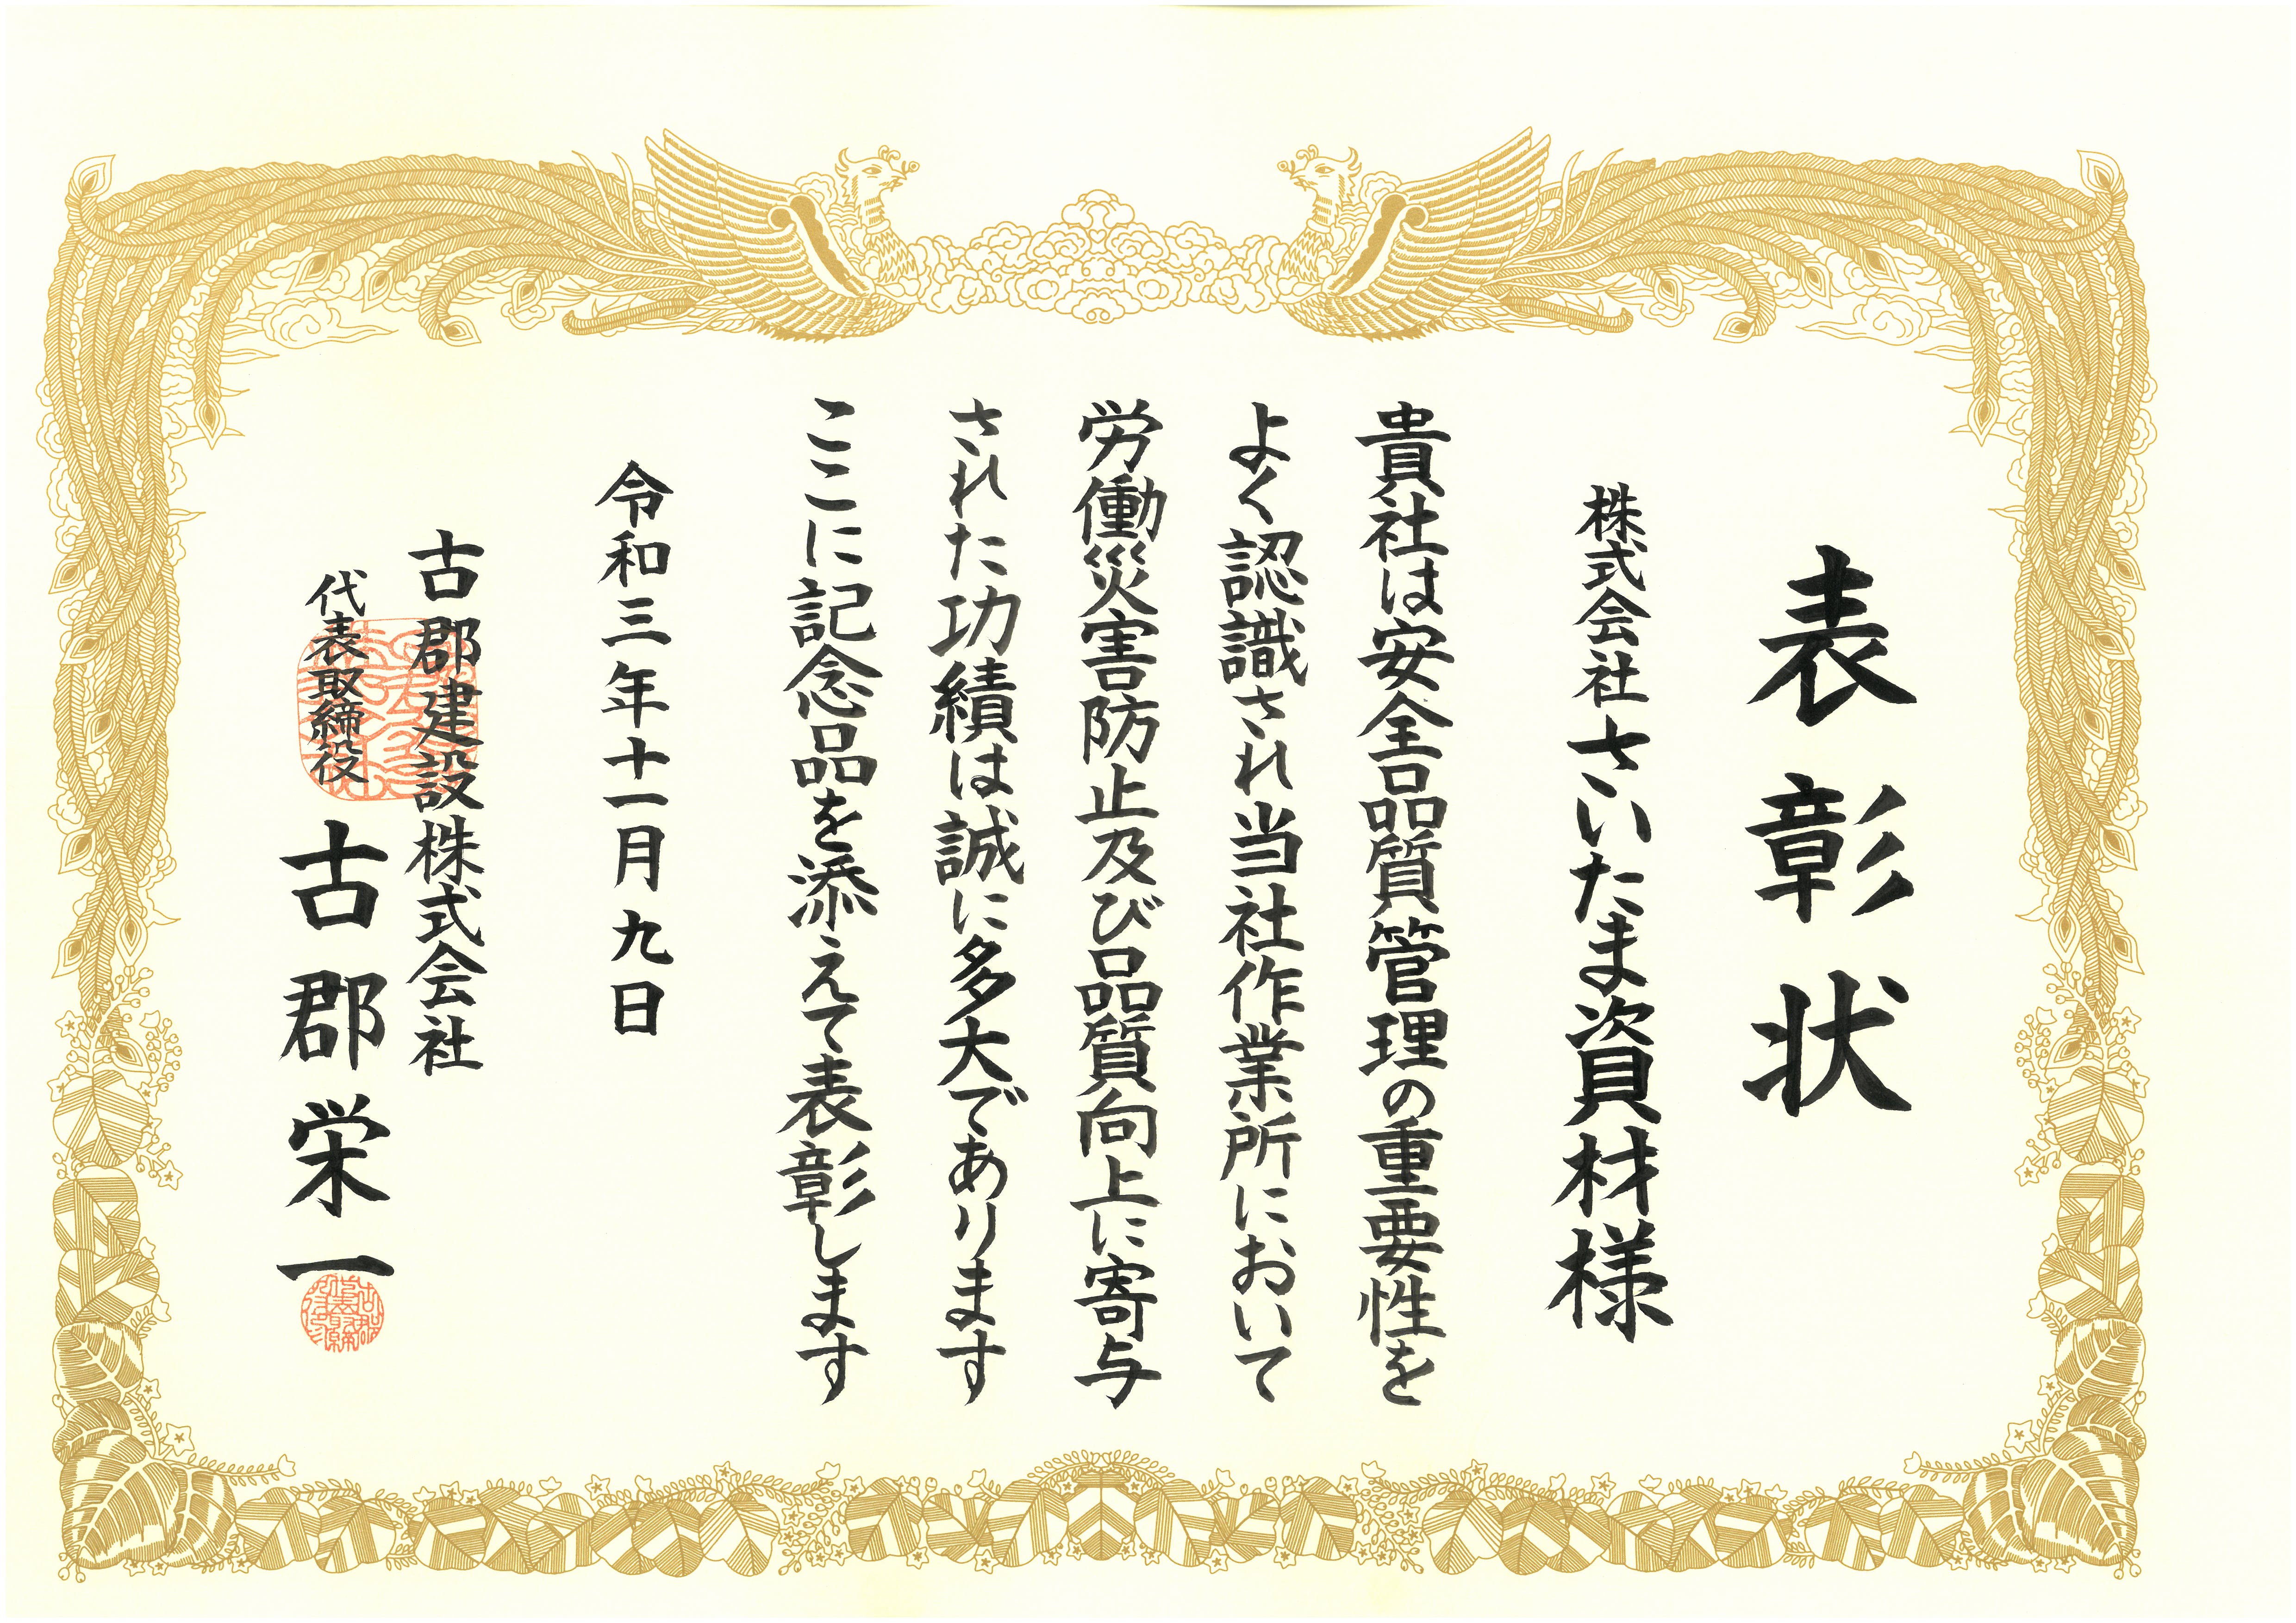 表彰状
株式会社さいたま資材様
貴社は安全品質管理の重要性を
よく認識され当社作業所において
労働災害防止及び品質向上に寄与
された功績は誠に多大であります
ここに記念品を添えて表彰します
令和三年十一月九日
古郡建設株式会社
代表取締役 古郡栄一